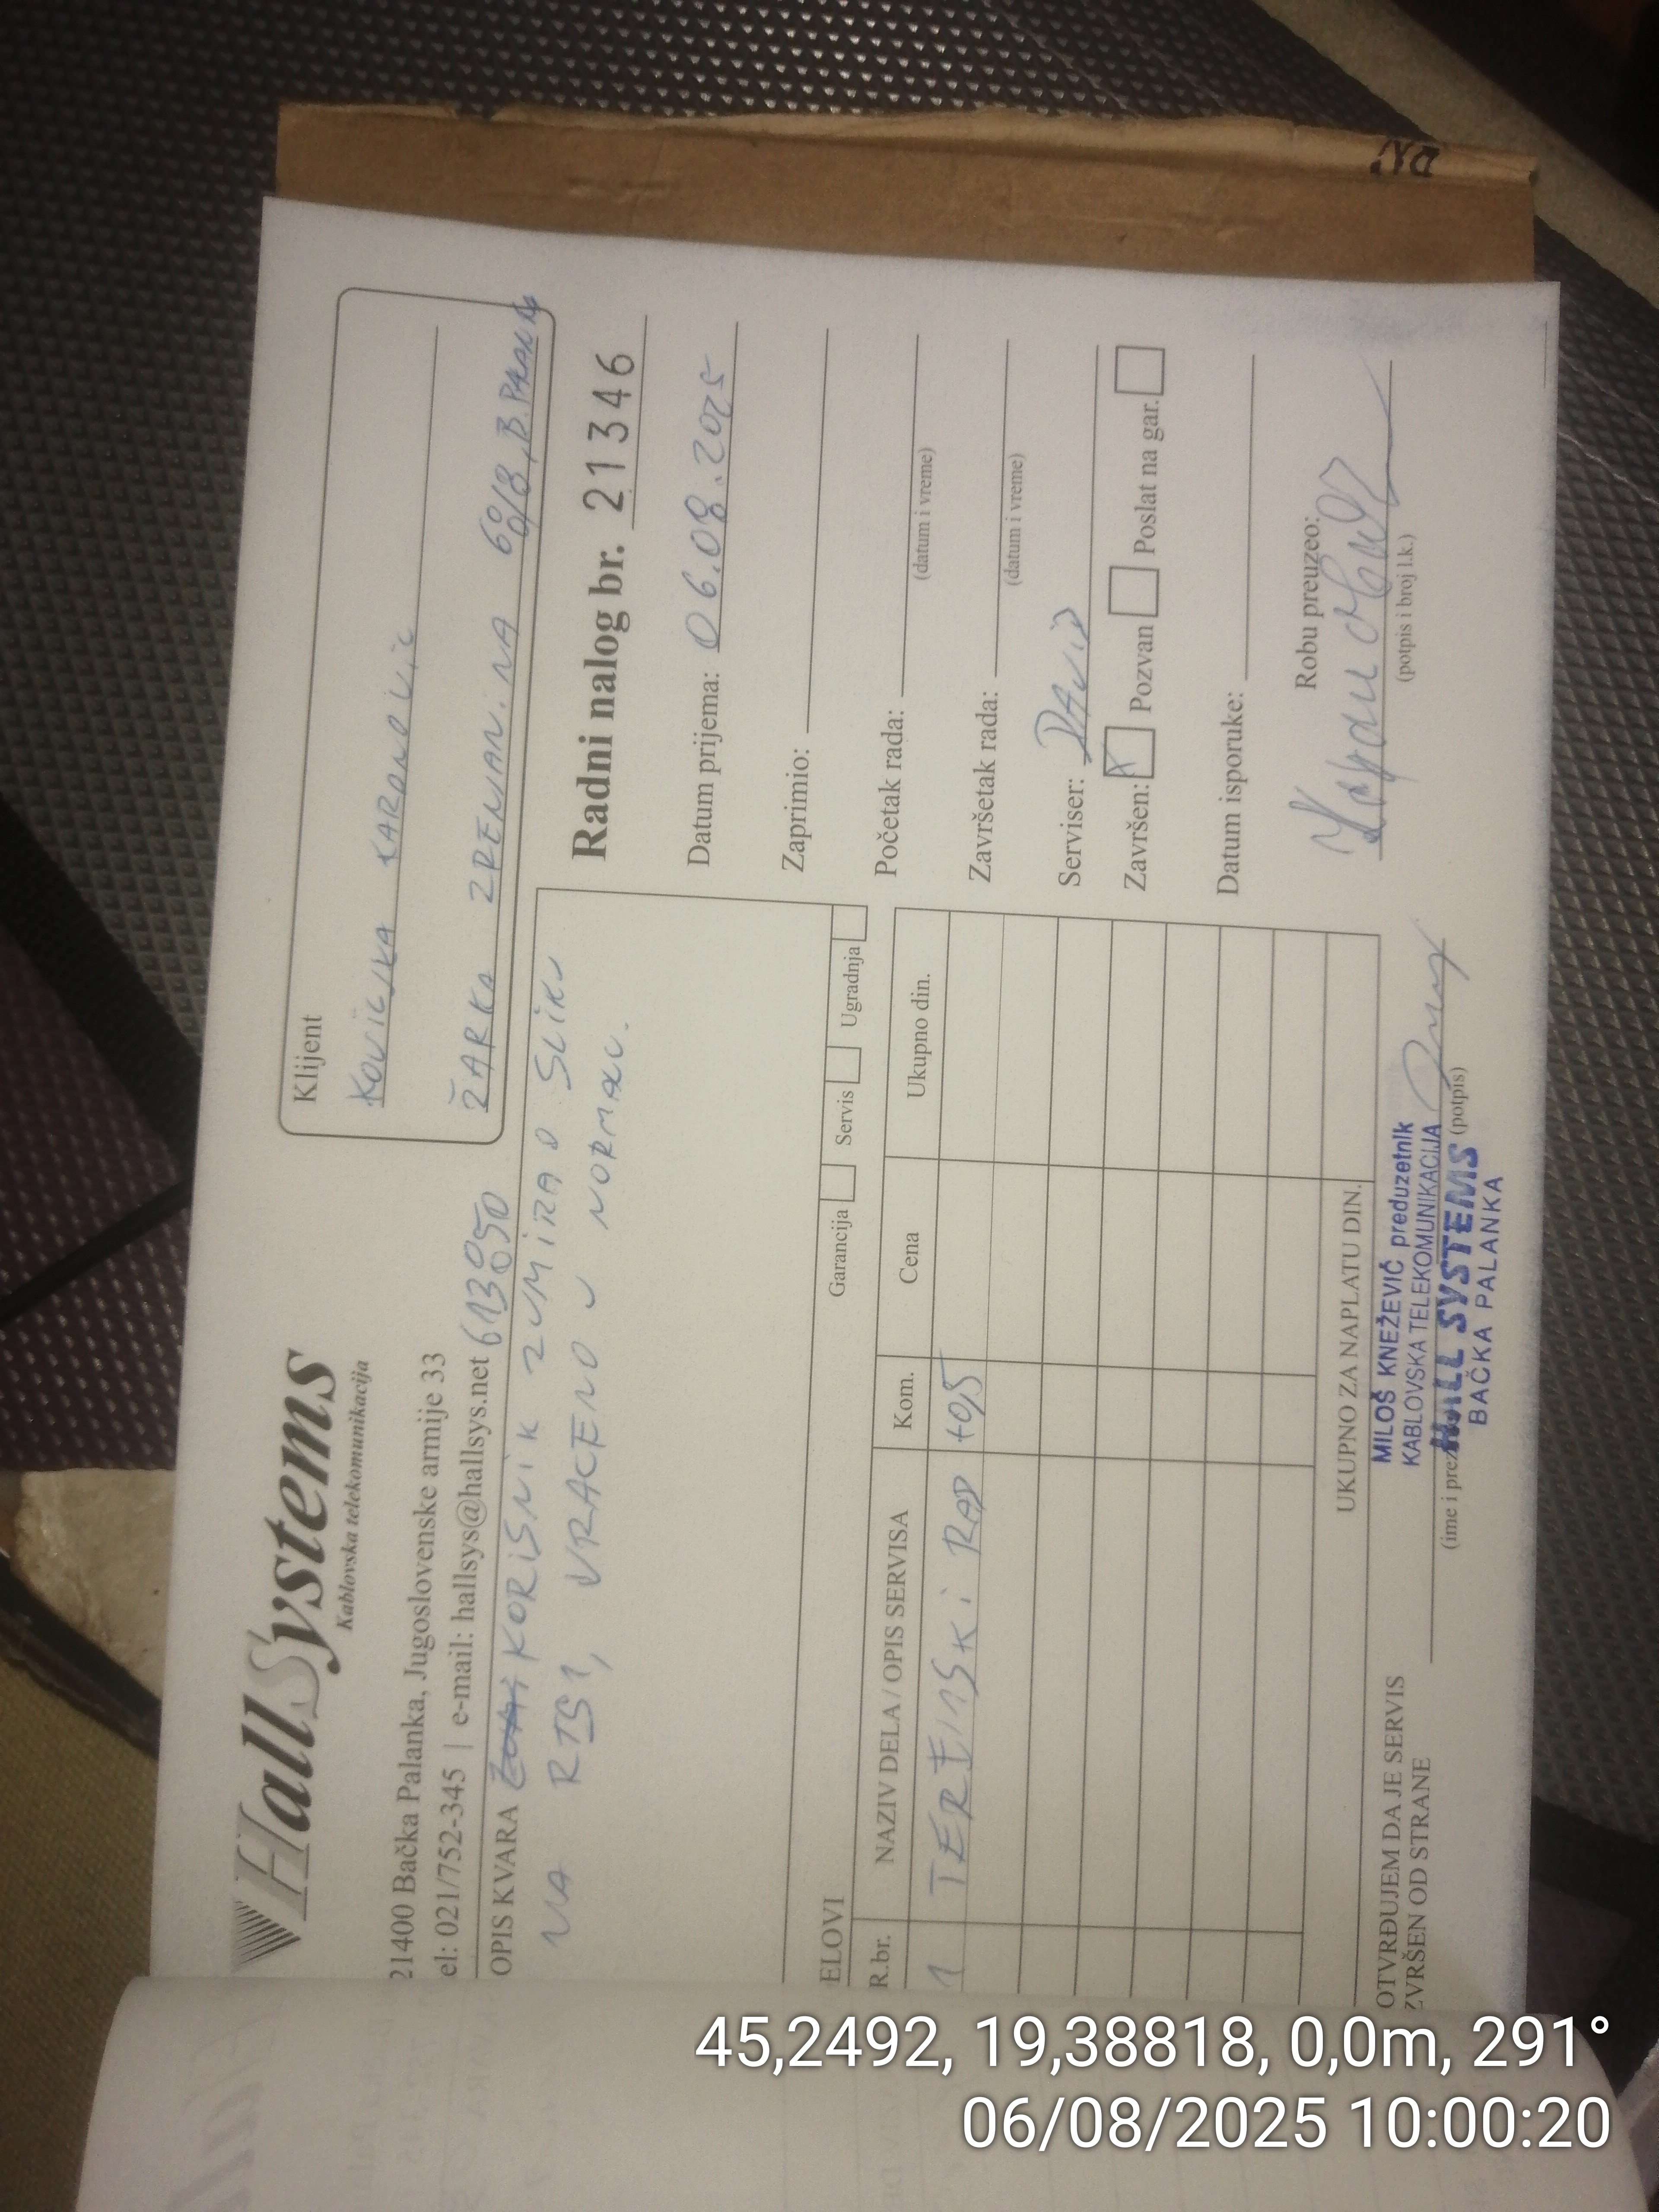 HallSystems
Kablovska telekomunikacija
21400 Bačka Palanka, Jugoslovenske armije 33
el: 021/752-345 | e-mail: hallsys@hallsys.net 613050
Klijent
KOVILJKA KARANOVIĆ
ŽARKA ZRENJANINA 60/8, B. PALANKA
OPIS KVARA KORISNIK ZUMIRAO SLIKU
NA RTS1, VRAĆENO U NORMALU.
Radni nalog br. 21346
Datum prijema: 06.08.2025
Zaprimio:
Početak rada:
(datum i vreme)
Završetak rada:
(datum i vreme)
Serviser: DAVID
Završen: X Pozvan Poslat na gar.
Datum isporuke:
Robu preuzeo:
(potpis i broj l.k.)
ELOVI
Garancija Servis Ugradnja
R.br. NAZIV DELA / OPIS SERVISA Kom. Cena Ukupno din.
1 TERENSKI RAD
UKUPNO ZA NAPLATU DIN.
OTVRĐUJEM DA JE SERVIS
ZVRŠEN OD STRANE
(ime i prez
(potpis)
MILOŠ KNEŽEVIĆ preduzetnik
KABLOVSKA TELEKOMUNIKACIJA
HALL SYSTEMS
BAČKA PALANKA
45,2492, 19,38818, 0,0m, 291°
06/08/2025 10:00:20